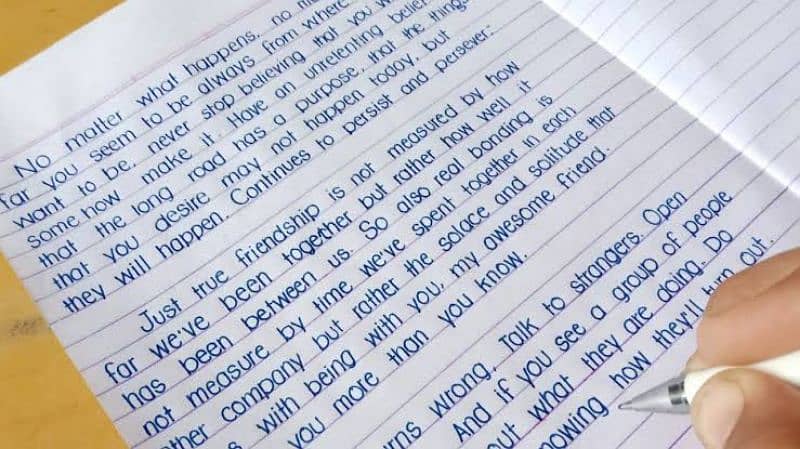 No matter what happens, no
far you seem to be always from where
want to be, never stop believing that you
some how make it. Have an unrelenting
that the long road has a purpose, that the things
that you desire may not happen today, but
they will happen. Continues to persist and persever.
Just true friendship is not measured by how
far we've been together but rather how well it
has been between us. So also real bonding is
not measure by time we've spent together in each
other company but rather the solace and solitude that
with being with you, my awesome friend.
you more than you know.
wrong. Talk to strangers. Open
And if you see a group of people
what they are doing. Do
how they'll turn out.